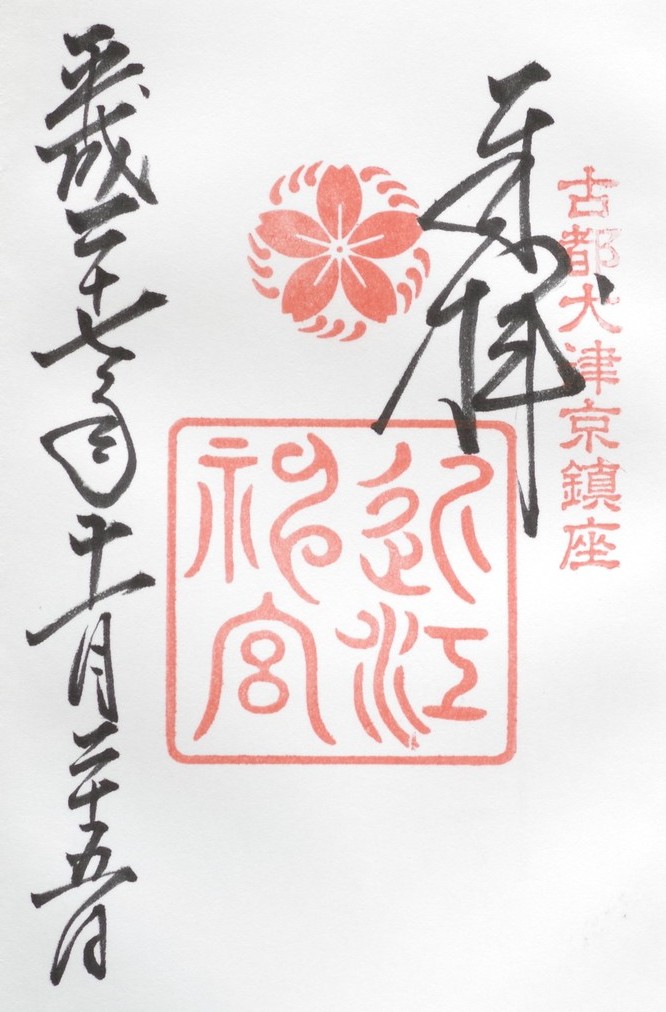 古都大津京鎮座
奉拝
近江
神宮
平成二十七年十一月二十五日